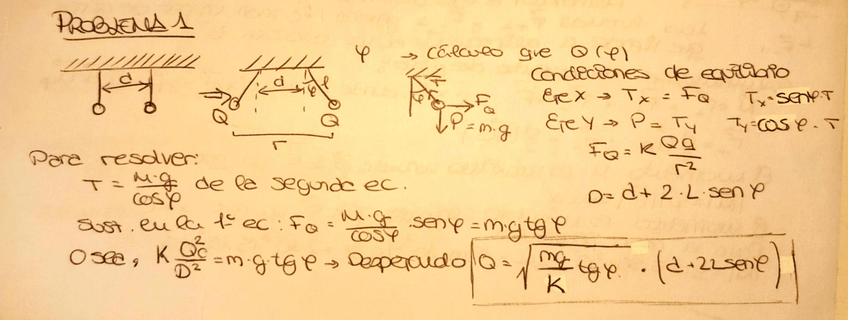 PROBLEMA 1
d
d
φ
l
Q
Q
r
φ → cálculo que Q(φ)
T
φ
F_Q
P = m·g
Condiciones de equilibrio
Eje X → Tx = F_Q   Tx = senφ·T
Eje Y → P = Ty   Ty = cosφ · T
F_Q = K Qq/r²
D = d + 2·L·senφ
Para resolver:
T = M·g/cosφ de la segunda ec.
Sust. en la 1ª ec: F_Q = M·g/cosφ · senφ = m·g tgφ
O sea, K Q²/D² = m·g·tgφ → Despejando Q = √(mg/K tgφ) · (d + 2L senφ)